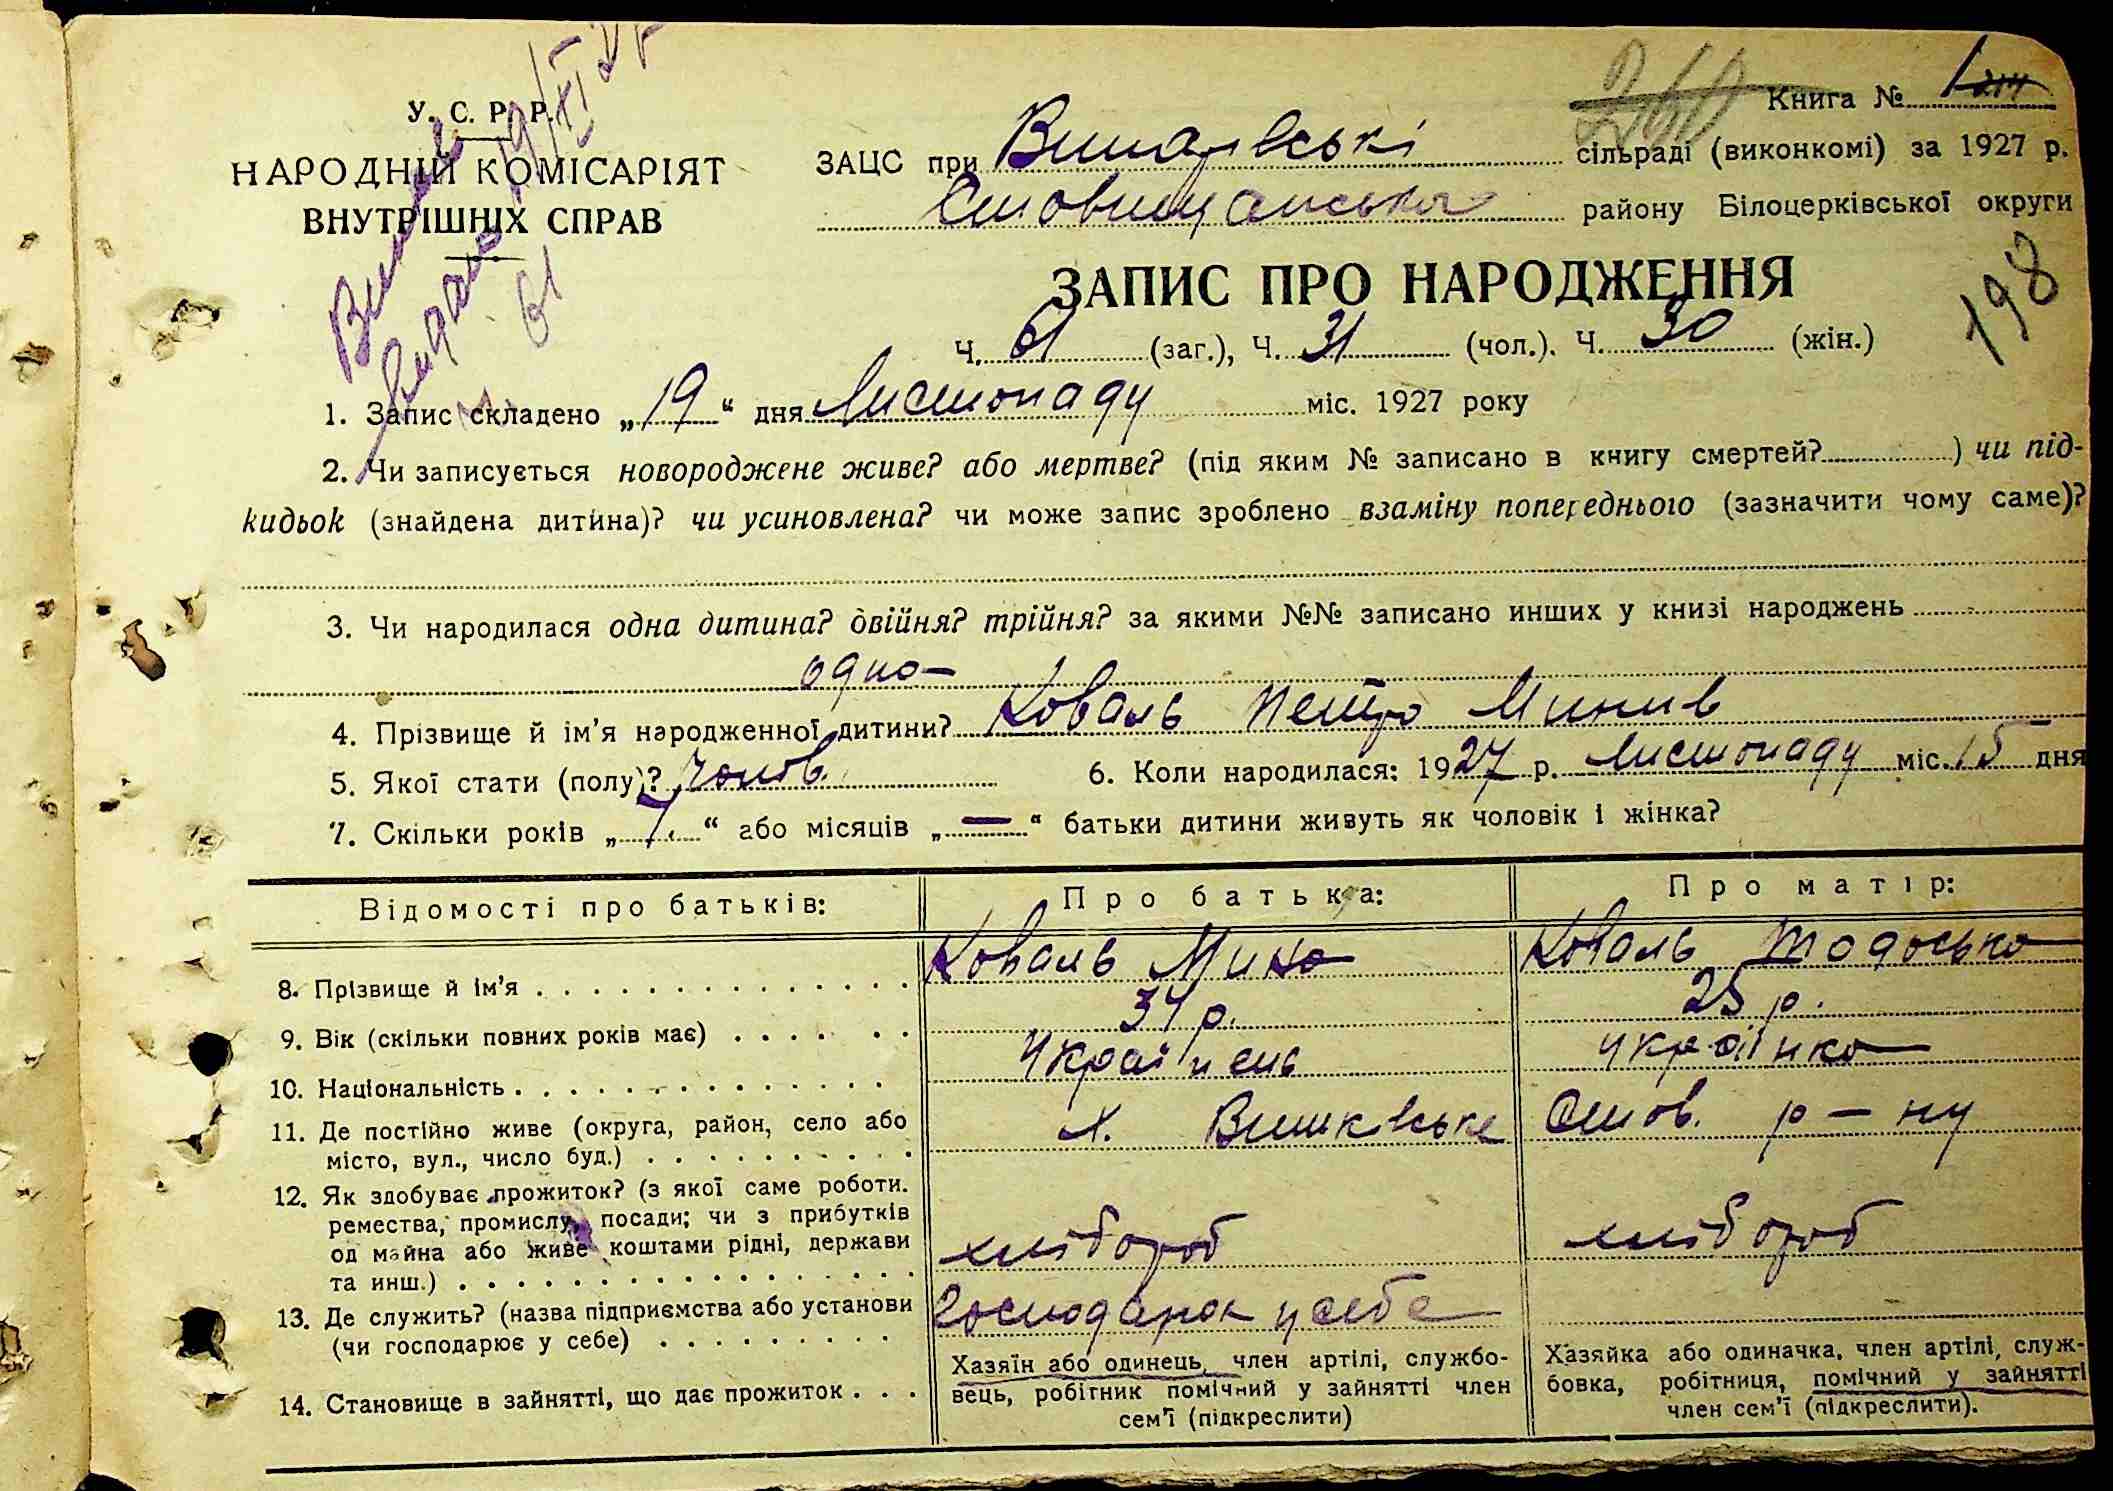 У. С. Р. Р.
НАРОДНІЙ КОМІСАРІЯТ
ВНУТРІШНІХ СПРАВ
260
Книга № 1
ЗАЦС при сільраді (виконкомі) за 1927 р.
району Білоцерківської округи
198
ЗАПИС ПРО НАРОДЖЕННЯ
Ч. 61 (заг.), Ч. 31 (чол.). Ч. 30 (жін.)
61
1. Запис складено „19“ дня Листопаду міс. 1927 року
2. Чи записується новороджене живе? або мертве? (під яким № записано в книгу смертей? ) чи під-
кидьок (знайдена дитина)? чи усиновлена? чи може запис зроблено взаміну попереднього (зазначити чому саме)?
3. Чи народилася одна дитина? двійня? трійня? за якими №№ записано инших у книзі народжень
одно
4. Прізвище й ім'я народженної дитини? Коваль Петро Минив
5. Якої стати (полу)? чолов. 6. Коли народилася: 1927 р. Листопаду міс. 15 дня
7. Скільки років „7.“ або місяців „—“ батьки дитини живуть як чоловік і жінка?
Відомості про батьків: Про батька: Про матір:
8. Прізвище й ім'я Коваль Мина Коваль Тодоська
9. Вік (скільки повних років має) 34 р. 25 р.
10. Національність Українець Українка
11. Де постійно живе (округа, район, село або
місто, вул., число буд.) х. Став. р-ну
12. Як здобуває прожиток? (з якої саме роботи.
ремества, промислу, посади; чи з прибутків
од майна або живе коштами рідні, держави
та инш.) хлібороб хлібороб
13. Де служить? (назва підприємства або установи
(чи господарює у себе) Господарює у себе
14. Становище в зайнятті, що дає прожиток
Хазяїн або одинець, член артілі, службо-
вець, робітник помічний у зайнятті член
сем'ї (підкреслити)
Хазяйка або одиначка, член артілі, служ-
бовка, робітниця, помічний у зайнятті
член сем'ї (підкреслити).